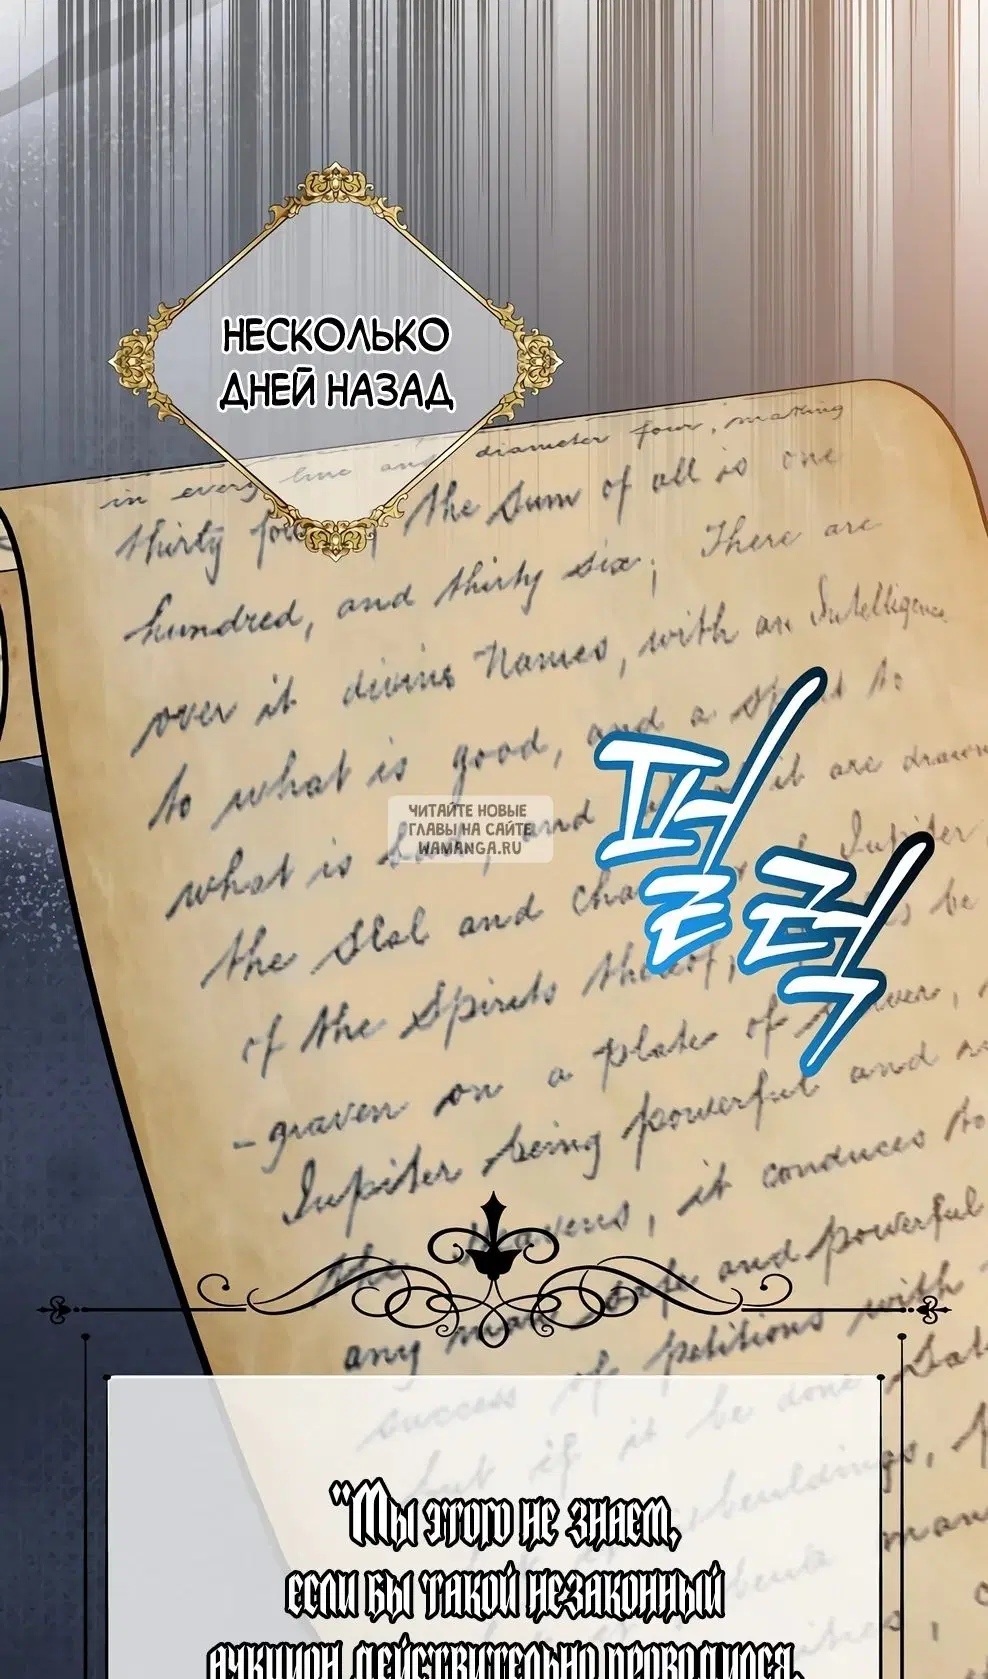 НЕСКОЛЬКО
ДНЕЙ НАЗАД
in every line and diameter four, making
thirty the sum of all is one
hundred, and thirty six; There are
over it divine Names, with an Intelligence
to what is good, and a to
what is bad, and it are drawn
the Seal and Jupiter
of the Spirits thereof, be
펄럭
ЧИТАЙТЕ НОВЫЕ
ГЛАВЫ НА САЙТЕ
WAMANGA.RU
-graven on a plate of
Jupiter being powerful and
the heavens, it conduces to
any man and powerful
success of petitions with
but if it be done
"Мы этого не знаем,
если бы такой незаконный
аукцион действительно проводился,